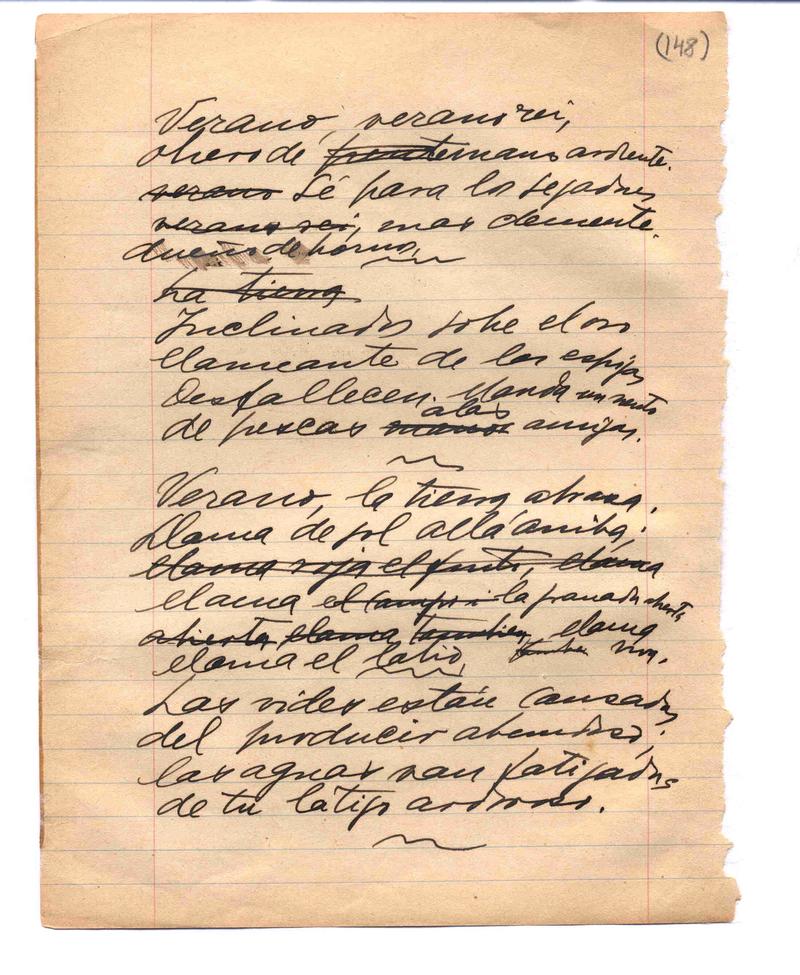 (148)
Verano, verano rei,
obrero de frente mano ardiente.
verano Sé para los segadores
verano rei, mas clemente.
dueño de horno,
La tierra
Inclinados sobre el oro
llameante de las espigas
Desfallecen. Manda un viento
alas
de frescas manos amigas.
Verano, la tierra abrasa.
Llama de sol allá arriba,
llama roja el fruto, llama
llama el campo i la granada abierta
abierta, llama tambien, llama
llama el labio, viva.
Las vides están cansadas
del producir abundoso;
las aguas van fatigadas
de tu látigo ardoroso.